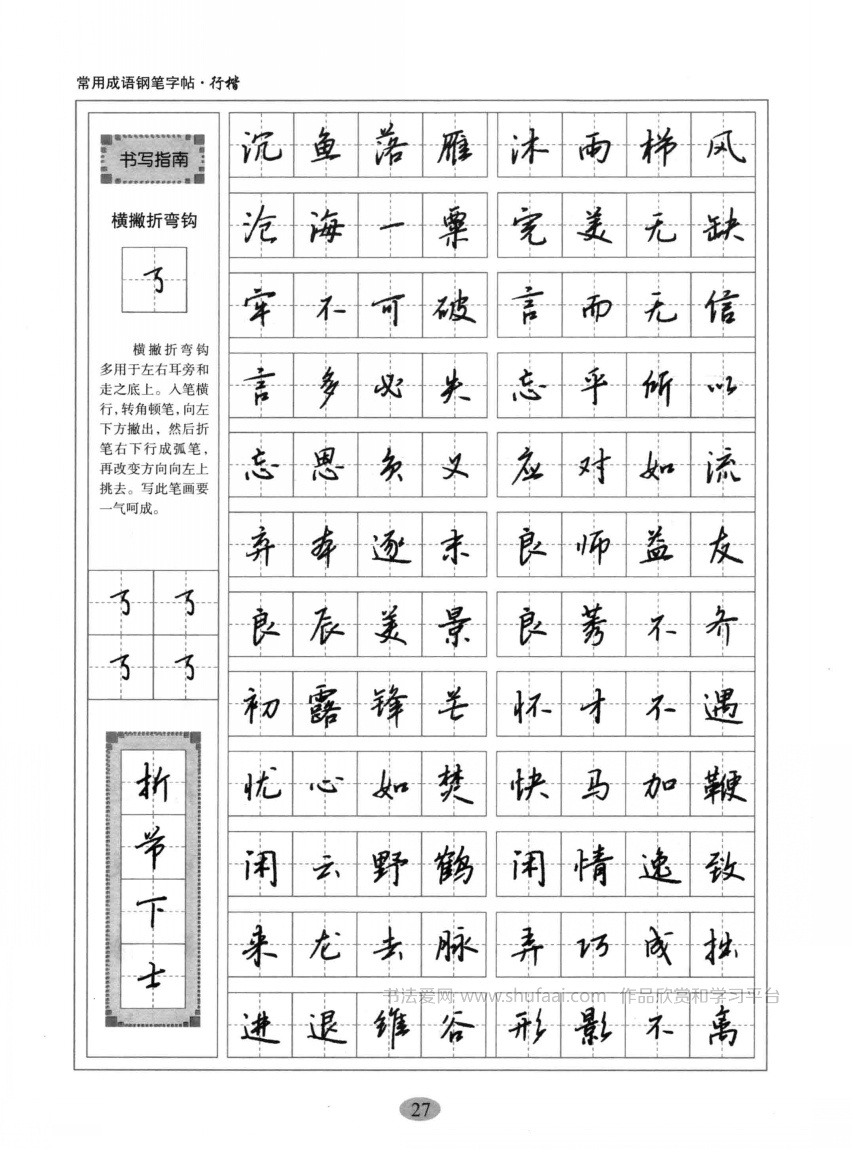 常用成语钢笔字帖·行楷
书写指南
横撇折弯钩
㇌
横撇折弯钩
多用于左右耳旁和
走之底上。入笔横
行，转角顿笔，向左
下方撇出，然后折
笔右下行成弧笔，
再改变方向向左上
挑去。写此笔画要
一气呵成。
㇌ ㇌
㇌ ㇌
折
节
下
士
沉鱼落雁 沐雨梯风
沧海一粟 完美无缺
牢不可破 言而无信
言多必失 忘乎所以
忘恩负义 应对如流
弃本逐末 良师益友
良辰美景 良莠不齐
初露锋芒 怀才不遇
忧心如焚 快马加鞭
闲云野鹤 闲情逸致
来龙去脉 弄巧成拙
进退维谷 形影不离
书法爱网 www.shufaai.com 作品欣赏和学习平台
27